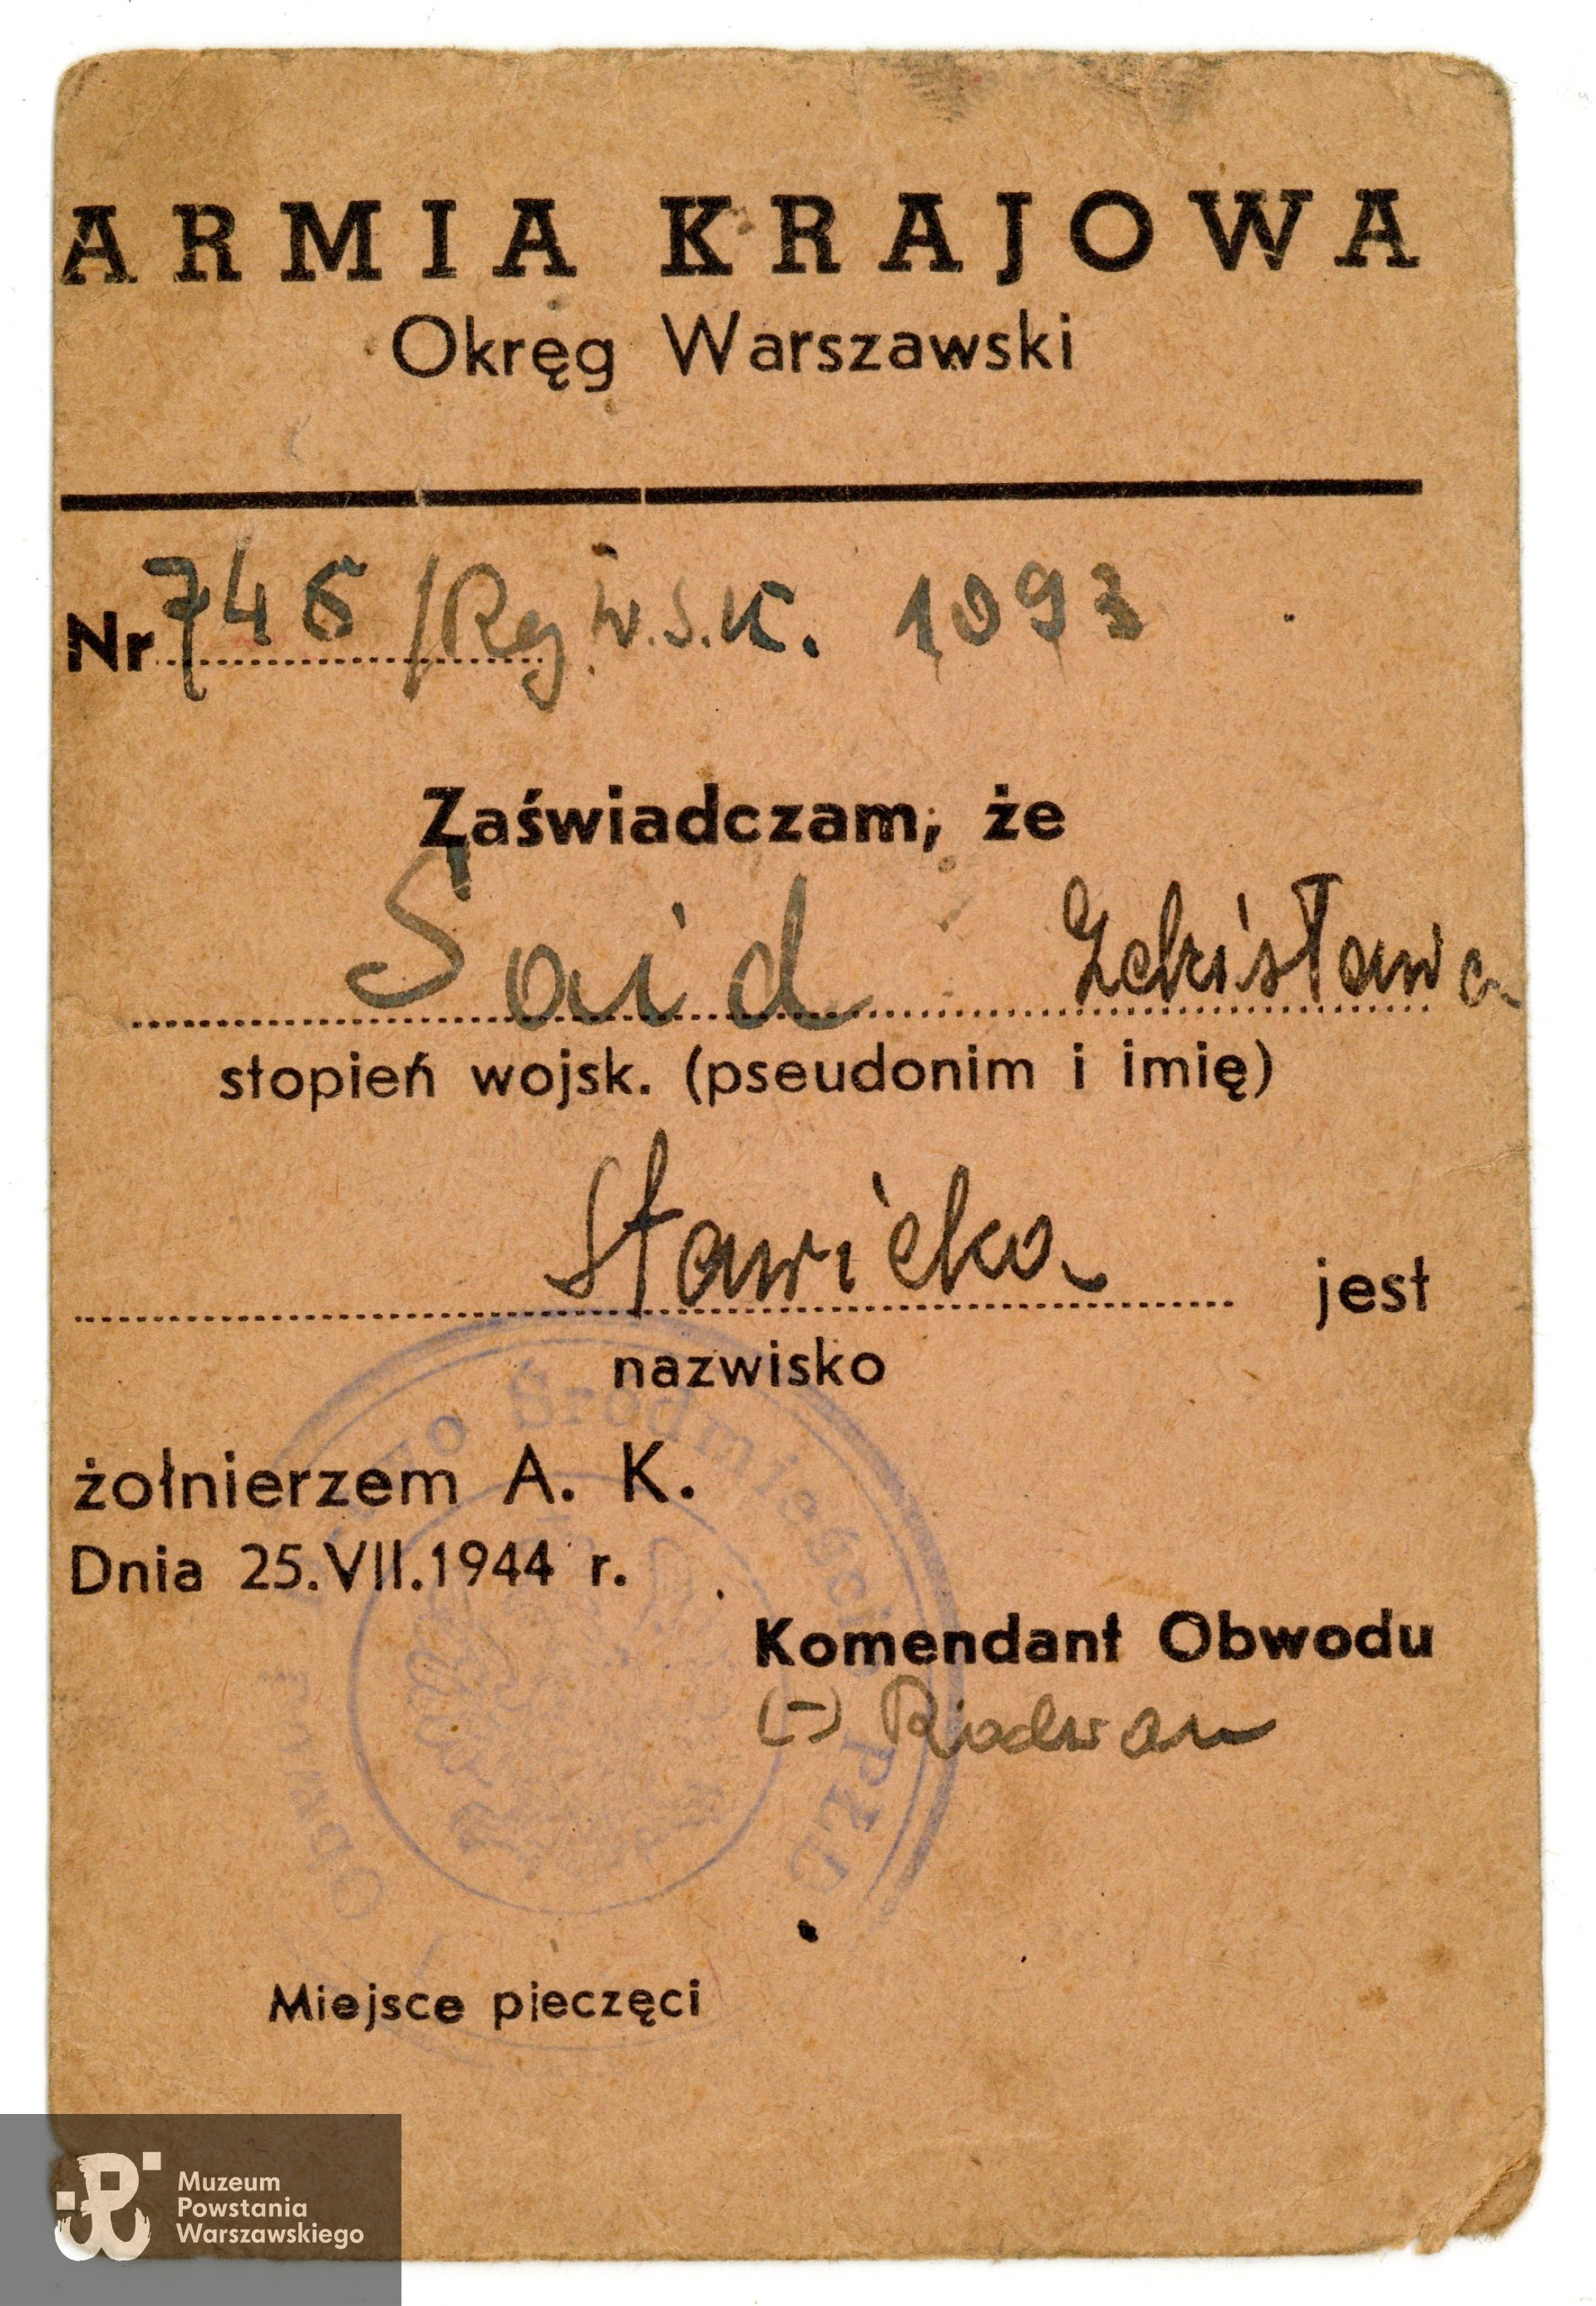 ARMIA KRAJOWA
Okręg Warszawski
Nr 746/Rej W.S.K. 1093
Zaświadczam, że
Said Zdzisława
stopień wojsk. (pseudonim i imię)
Stawicka jest
nazwisko
żołnierzem A. K.
Dnia 25.VII.1944 r.
Komendant Obwodu
(-) Radwan
Śródmieście
Obwód
Miejsce pieczęci
Muzeum
Powstania
Warszawskiego